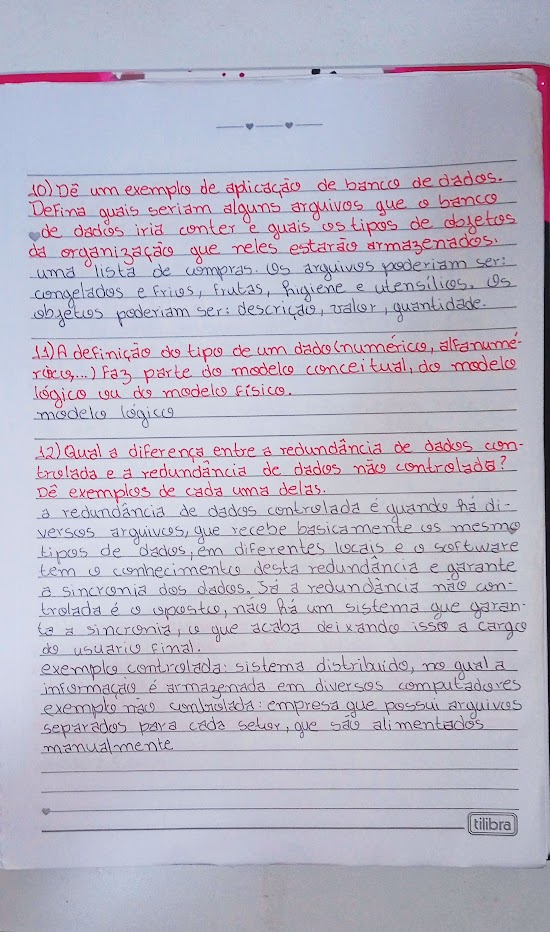 10) Dê um exemplo de aplicação de banco de dados.
Defina quais seriam alguns arquivos que o banco
de dados iria conter e quais os tipos de objetos
da organização que neles estarão armazenados.
uma lista de compras. Os arquivos poderiam ser:
congelados e frios, frutas, higiene e utensílios. Os
objetos poderiam ser: descrição, valor, quantidade.
11) A definição do tipo de um dado (numérico, alfanumé-
rico,...) Faz parte do modelo conceitual, do modelo
lógico ou do modelo físico.
modelo lógico
12) Qual a diferença entre a redundância de dados con-
trolada e a redundância de dados não controlada?
Dê exemplos de cada uma delas.
a redundância de dados controlada é quando há di-
versos arquivos, que recebe basicamente os mesmo
tipos de dados, em diferentes locais e o software
tem o conhecimento desta redundância e garante
a sincronia dos dados. Já a redundância não con-
trolada é o oposto, não há um sistema que garan-
ta a sincronia, o que acaba deixando isso a cargo
do usuario final.
exemplo controlada: sistema distribuido, no qual a
informação é armazenada em diversos computadores
exemplo não controlada: empresa que possui arquivos
separados para cada setor, que são alimentados
manualmente
tilibra